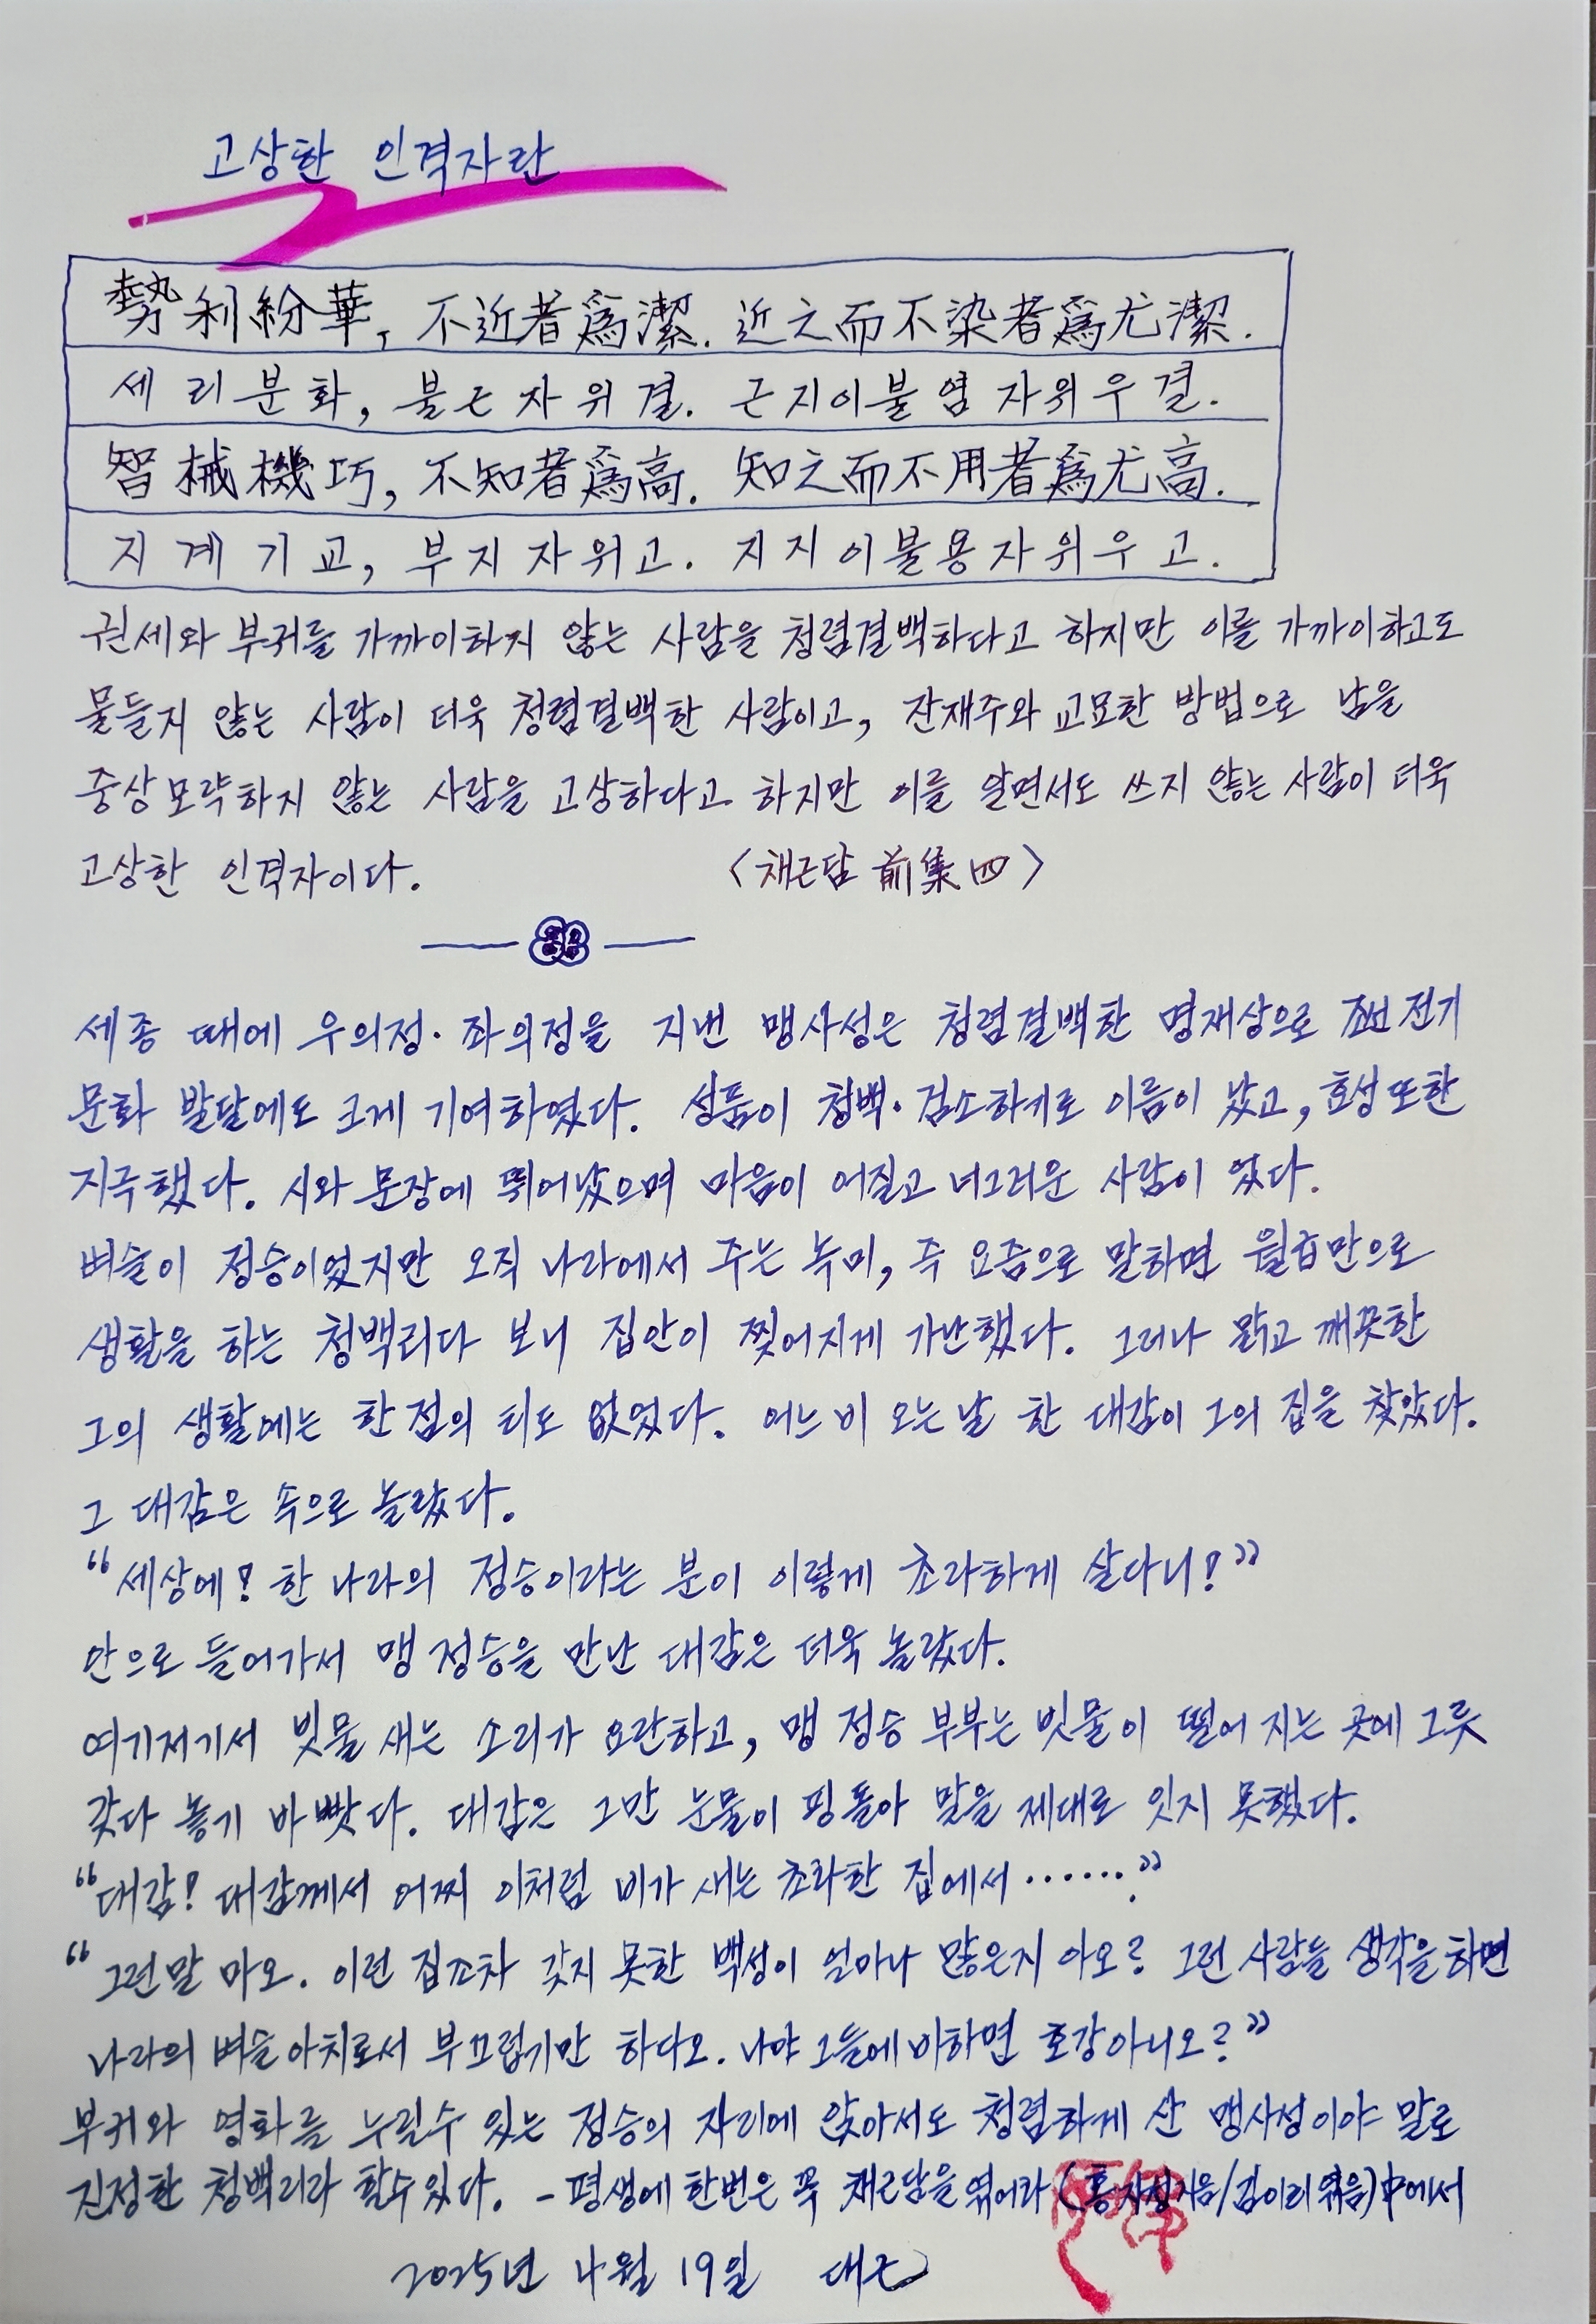 고상한 인격자란
勢利紛華, 不近者爲潔. 近之而不染者爲尤潔.
세리분화, 불근자위결. 근지이불염자위우결.
智械機巧, 不知者爲高. 知之而不用者爲尤高.
지계기교, 부지자위고. 지지이불용자위우고.
권세와 부귀를 가까이하지 않는 사람을 청렴결백하다고 하지만 이를 가까이하고도
물들지 않는 사람이 더욱 청렴결백한 사람이고, 잔재주와 교묘한 방법으로 남을
중상모략하지 않는 사람을 고상하다고 하지만 이를 알면서도 쓰지 않는 사람이 더욱
고상한 인격자이다. <채근담 前集 四>
세종 때에 우의정·좌의정을 지낸 맹사성은 청렴결백한 명재상으로 조선 전기
문화 발달에도 크게 기여하였다. 성품이 청백·검소하기로 이름이 났고, 효성 또한
지극했다. 시와 문장에 뛰어났으며 마음이 어질고 너그러운 사람이 었다.
벼슬이 정승이었지만 오직 나라에서 주는 녹미, 즉 요즘으로 말하면 월급만으로
생활을 하는 청백리다 보니 집안이 찢어지게 가난했다. 그러나 맑고 깨끗한
그의 생활에는 한 점의 티도 없었다. 어느 비 오는 날 한 대감이 그의 집을 찾았다.
그 대감은 속으로 놀랐다.
“세상에! 한 나라의 정승이라는 분이 이렇게 초라하게 살다니!”
안으로 들어가서 맹 정승을 만난 대감은 더욱 놀랐다.
여기저기서 빗물 새는 소리가 요란하고, 맹 정승 부부는 빗물이 떨어 지는 곳에 그릇
갖다 놓기 바빴다. 대감은 그만 눈물이 핑 돌아 말을 제대로 잇지 못했다.
“대감! 대감께서 어찌 이처럼 비가 새는 초라한 집에서……?”
“그런말 마오. 이런 집조차 갖지 못한 백성이 얼마나 많은지 아오? 그런 사람들 생각을 하면
나라의 벼슬아치로서 부끄럽기만 하다오. 나야 그들에 비하면 호강아니오?”
부귀와 영화를 누릴수 있는 정승의 자리에 앉아서도 청렴하게 산 맹사성이야 말로
진정한 청백리라 할수있다. - 평생에 한번은 꼭 채근담을 엮어라 (홍자성지음/김이리 엮음)中에서
2025년 4월 19일 대근